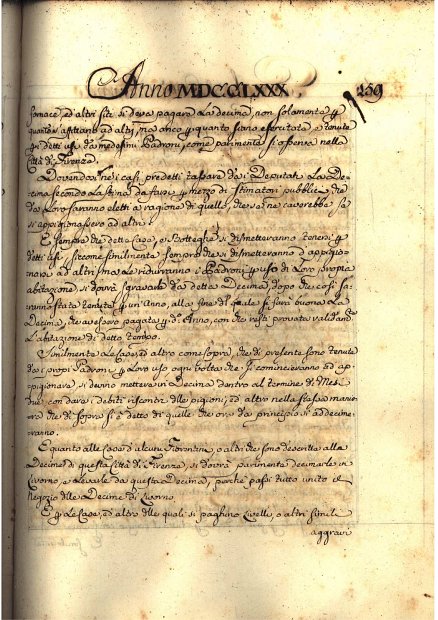 Anno MDCCLXXX. 259
fornace, ed altri siti si deva pagare la decima, non solamente p
quanto s'affittano ad altri, ma anco p quanto siano esercitate, e tenute
p detti usi da medesimi Padroni, come parimente si osserva nella
Città di Firenze.
Dovendosi ne i casi predetti tassare da i Deputati la De-
cima secondo la stima da farsi p mezzo di stimatori pubblici, che
da loro saranno eletti a ragione di quello, che se ne caverebbe se
si appigionassero ad altri.
E sempre che dette Case, e Botteghe si dismetteranno tenersi p
detti usi, siccome similmente sempre che si dismetteranno d'appigio-
narsi ad altri, ma le ridurranno i Padroni p uso di loro propria
abitazione, si dovrà sgravare da detta Decima dopo che così sa-
ranno state tenute p un'Anno, alla fine del quale si farà buona la
Decima, che avessero pagata p d.o Anno, con che resti provata validam.te
l'abitazione di detto tempo.
Similmente le Case, ed altro come sopra, che di presente sono tenute
da i propri Padroni p loro uso ogni volta che si cominceranno ad ap-
pigionare si devino mettere in Decima dentro al termine di Mesi
due, con dare i debiti riscontri delle pigioni, ed altro nella stessa manie-
ra che di sopra si è detto di quelle che ora da principio si addecime-
ranno.
E quanto alle Case d'alcuni Fiorentini, o altri che sono descritte alla
Decima di questa Città di Firenze, si dovrà parimente decimarle in
Livorno, e levarle da questa Decima, perchè passi tutto unito il
negozio delle Decime di Livorno.
E p le Case, ed altro delle quali si paghino livelli, o altri simili
aggravi